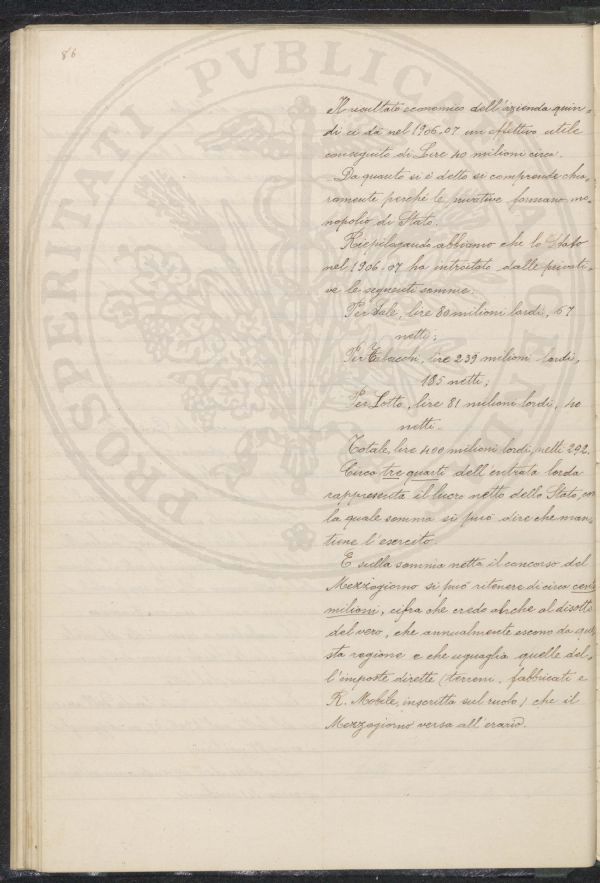 86
PROSPERITATI PVBLICAE AVGENDAE
Il risultato economico dell'azienda quin-
di ci dà nel 1906-07 un effettivo utile
conseguito di Lire 40 milioni circa.
Da quanto si è detto si comprende chia-
ramente perché le privative formano mo-
nopolio di Stato.
Riepilogando abbiamo che lo Stato
nel 1906-07 ha introitato dalle privati-
ve le seguenti somme:
Per Sale, lire 80 milioni lordi, 67
netti;
Per Tabacchi, lire 239 milioni lordi,
185 netti;
Per Lotto, lire 81 milioni lordi, 40
netti.
Totale, lire 400 milioni lordi, netti 292.
Circa tre quarti dell'entrata lorda
rappresenta il lucro netto dello Stato, con
la quale somma si può dire che man-
tiene l'esercito.
E sulla somma netta il concorso del
Mezzogiorno si può ritenere di circa cento
milioni, cifra che credo anche al disotto
del vero, che annualmente escono da que-
sta regione e che uguaglia quelle del-
l'imposte dirette (terreni, fabbricati e
R. Mobile, inscritta sul ruolo) che il
Mezzogiorno versa all'erario.